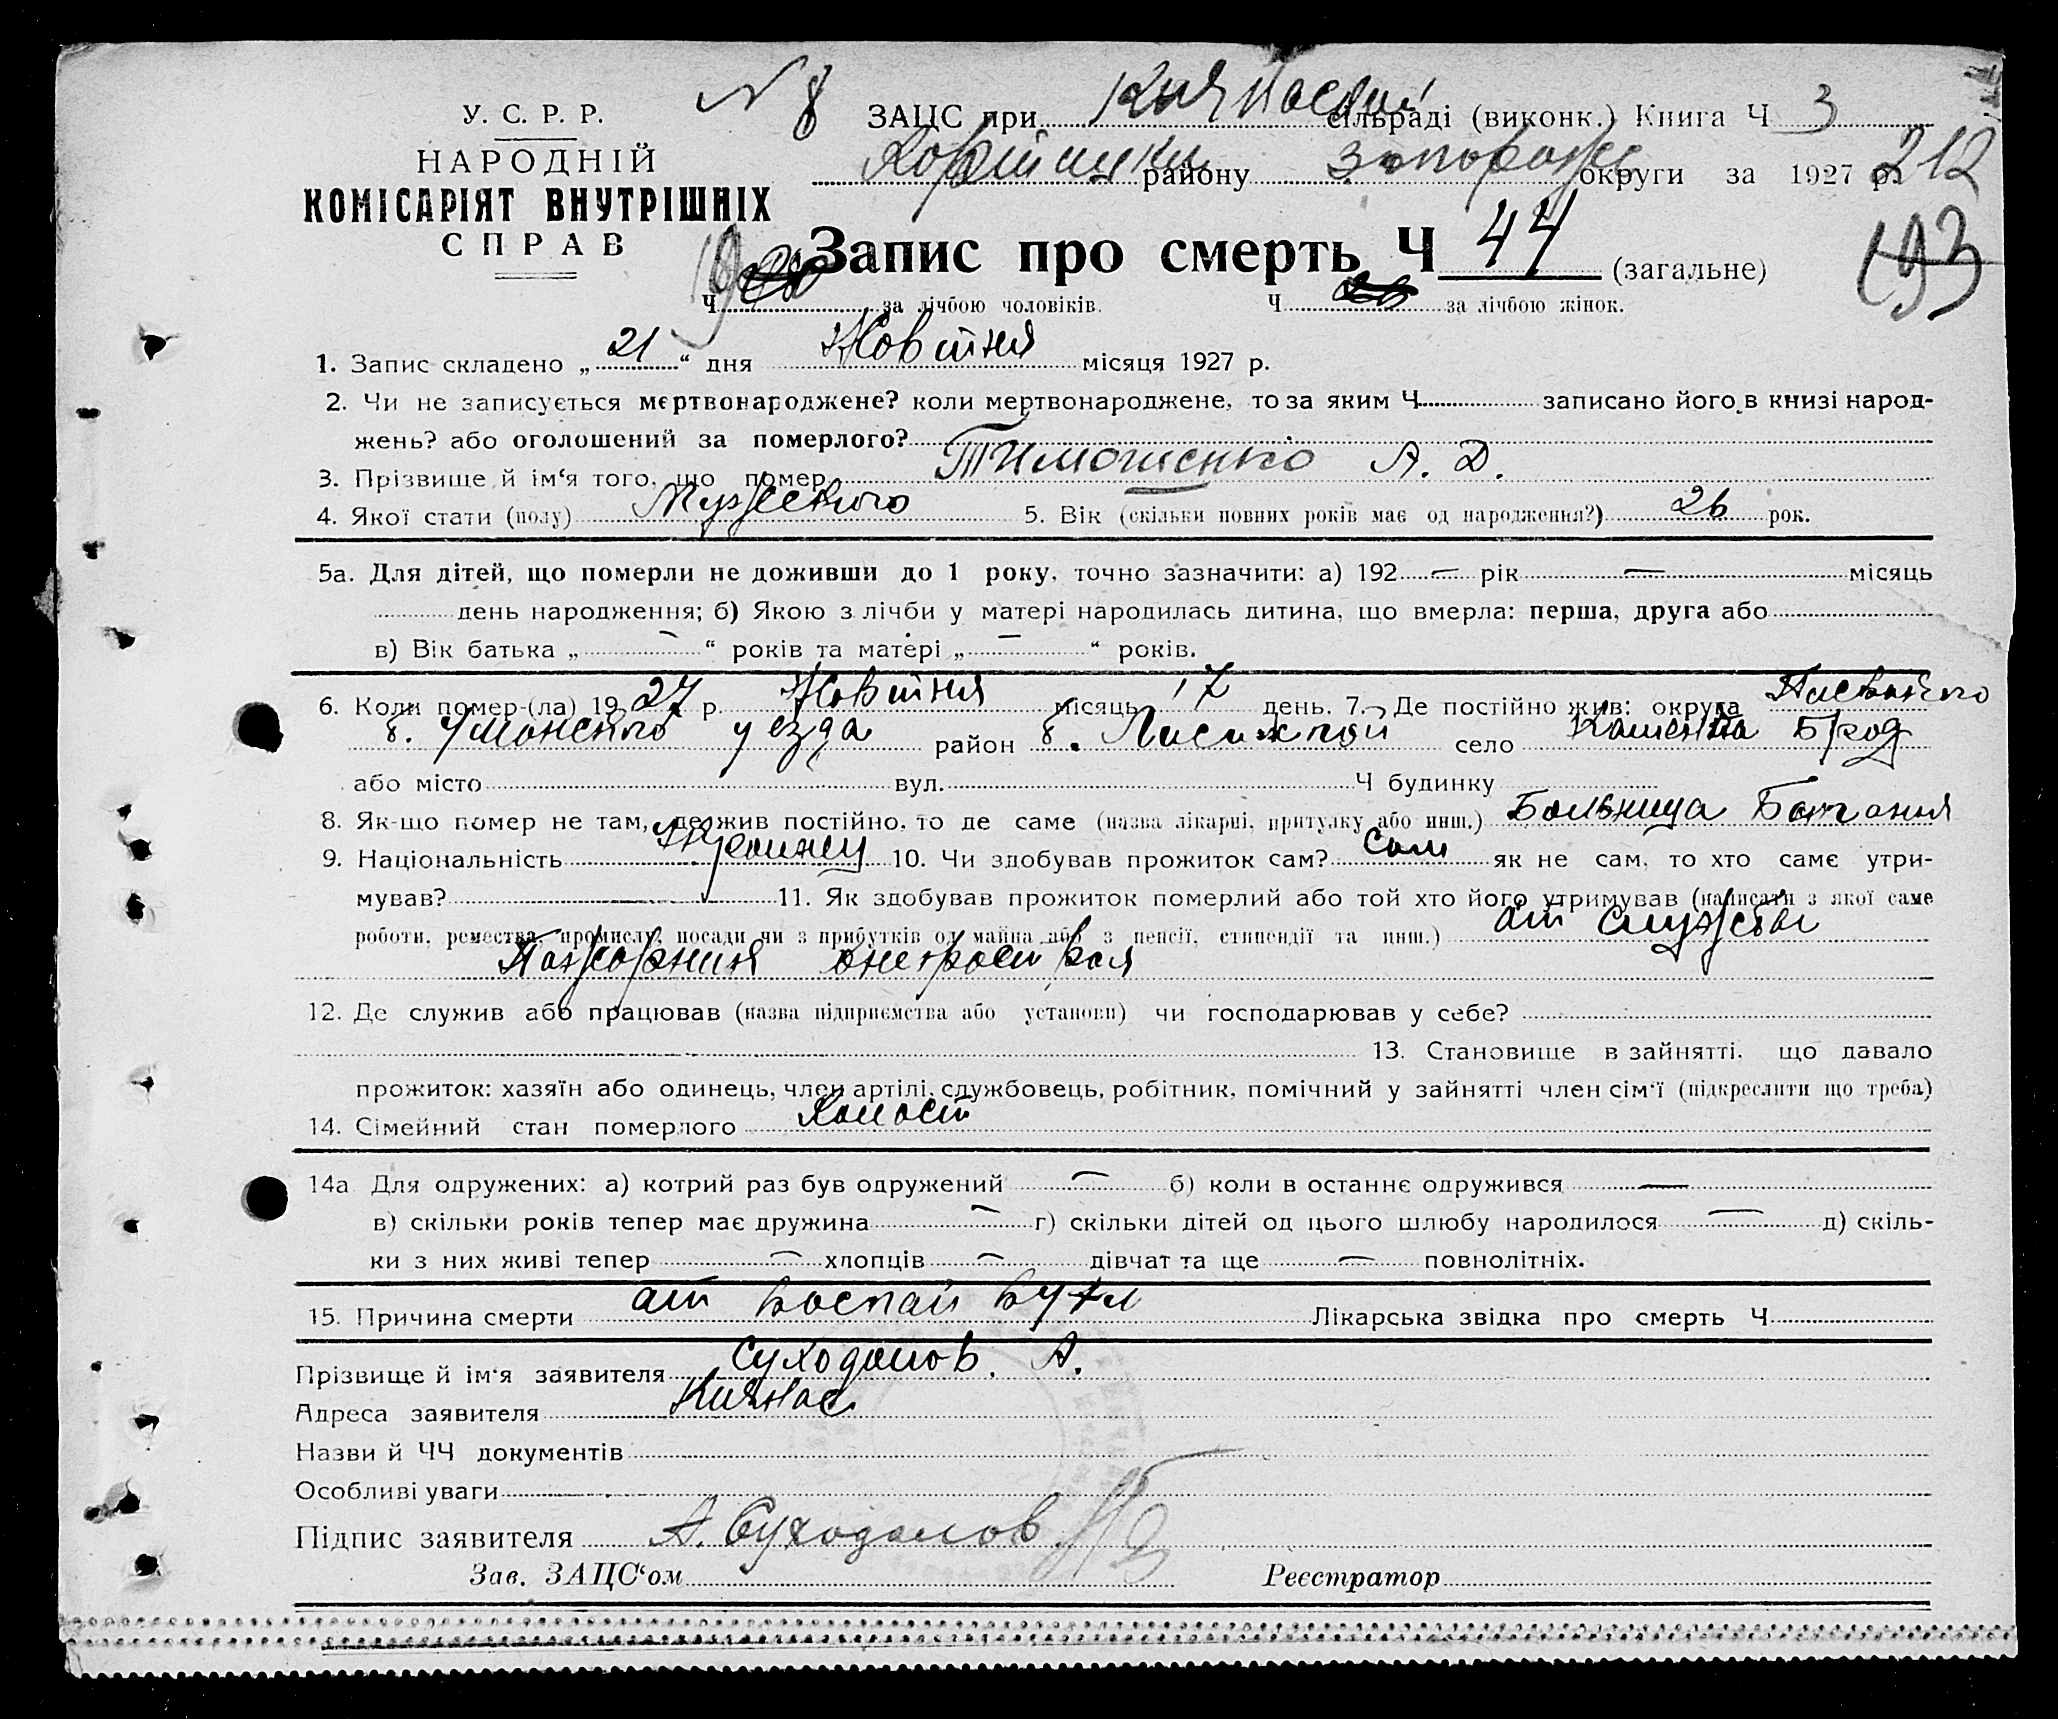 N 8
У. С. Р. Р.
НАРОДНІЙ
КОМІСАРІЯТ ВНУТРІШНІХ
СПРАВ
ЗАЦС при Кичкаській сільраді (виконк.) Книга Ч 3
району округи за 1927 р. 212
193
Запис про смерть Ч 44 (загальне)
Ч 19 за лічбою чоловіків. Ч за лічбою жінок.
1. Запис складено „ 21 “ дня Жовтня місяця 1927 р.
2. Чи не записується мертвонароджене? коли мертвонароджене, то за яким Ч записано його в книзі народ-
жень? або оголошений за померлого?
3. Прізвище й ім‘я того, що помер Тимошенко А. Д.
4. Якої стати (полу) Мужского 5. Вік (скільки повних років має од народження?) 26 рок.
5а. Для дітей, що померли не доживши до 1 року, точно зазначити: а) 192 — рік — місяць
день народження; б) Якою з лічби у матері народилась дитина, що вмерла: перша, друга або
в) Вік батька „ — “ років та матері „ — “ років.
6. Коли помер-(ла) 19 27 р. Жовтня місяць 17 день. 7. Де постійно жив: округа
б. Уманского уезда район б. село Каменна Брод
або місто вул. Ч будинку
8. Як-що помер не там, де жив постійно, то де саме (назва лікарні, притулку або инш.) Больница
9. Національність 10. Чи здобував прожиток сам? Сам як не сам, то хто саме утри-
мував? 11. Як здобував прожиток померлий або той хто його утримував (написати з якої саме
роботи, ремества, промислу, посади чи з прибутків од майна або з пенсії, стипендії та инш.) от службы
12. Де служив або працював (назва підприємства або установи) чи господарював у себе?
13. Становище в зайнятті, що давало
прожиток: хазяїн або одинець, член артілі, службовець, робітник, помічний у зайнятті член сім‘ї (підкреслити що треба)
14. Сімейний стан померлого Холост
14а Для одружених: а) котрий раз був одружений — б) коли в останнє одружився —
в) скільки років тепер має дружина — г) скільки дітей од цього шлюбу народилося — д) скіль-
ки з них живі тепер — хлопців — дівчат та ще — повнолітніх.
15. Причина смерти от Лікарська звідка про смерть Ч
Прізвище й ім‘я заявителя Суходолов. А.
Адреса заявителя Кичкас
Назви й ЧЧ документів
Особливі уваги
Підпис заявителя А. Суходолов
Зав. ЗАЦС‘ом Реєстратор